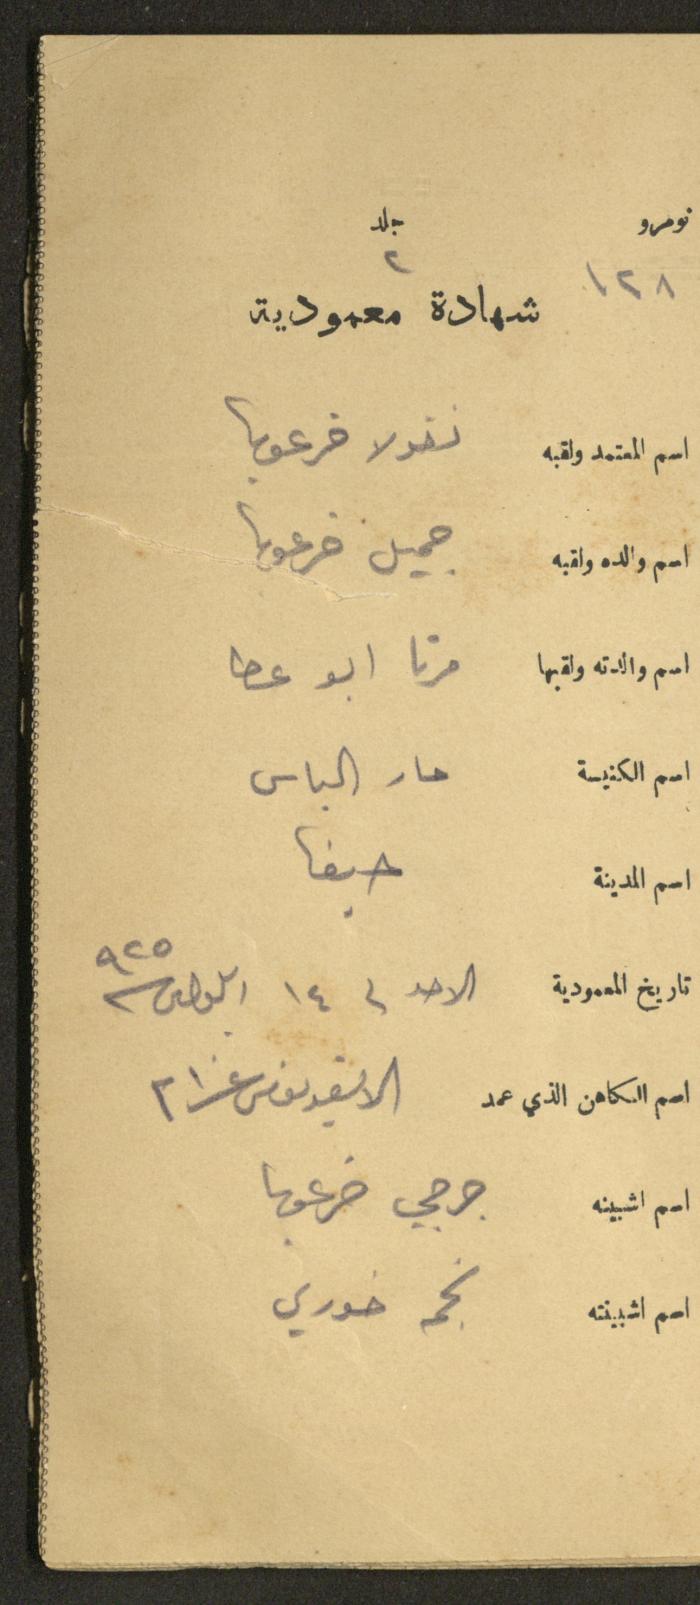 نومرو جلد
١٢٨ ٢
شهادة معمودية
اسم المعتمد ولقبه نقولا قرعوبا
اسم والده ولقبه جميل قرعوبا
اسم والدته ولقبها مرتا ابو عطا
اسم الكنيسة مار الياس
اسم المدينة حيفا
تاريخ المعمودية الاحد في ١٤ ٩٢٥
اسم الكاهن الذي عمد
اسم اشبينه جرجي قرعوبا
اسم اشبينته نجمه خوري